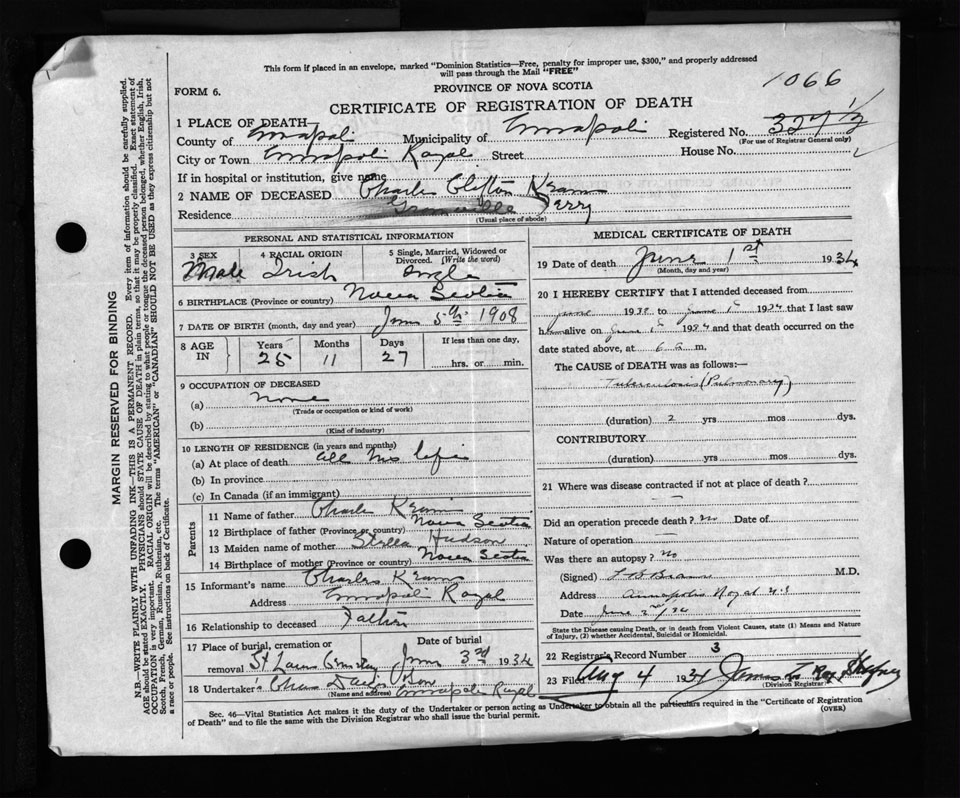 This form if placed in an envelope, marked "Dominion Statistics—Free, penalty for improper use, $300," and properly addressed
will pass through the Mail "FREE"
1066
FORM 6.
PROVINCE OF NOVA SCOTIA
CERTIFICATE OF REGISTRATION OF DEATH
1 PLACE OF DEATH
County of Annapolis Municipality of Annapolis Registered No.
(For use of Registrar General only)
City or Town Annapolis Royal Street House No.
If in hospital or institution, give name
2 NAME OF DECEASED Charles Clifton
Residence Granville Ferry
(Usual place of abode)
PERSONAL AND STATISTICAL INFORMATION
3 SEX 4 RACIAL ORIGIN 5 Single, Married, Widowed or Divorced. (Write the word)
Male Irish Single
6 BIRTHPLACE (Province or country) Nova Scotia
7 DATE OF BIRTH (month, day and year) 5th 1908
8 AGE IN Years Months Days If less than one day,
25 11 27 hrs. or min.
9 OCCUPATION OF DECEASED
(a) None
(Trade or occupation or kind of work)
(b)
(Kind of industry)
10 LENGTH OF RESIDENCE (in years and months)
(a) At place of death all his life
(b) In province
(c) In Canada (if an immigrant)
Parents
11 Name of father Charles
12 Birthplace of father (Province or country) Nova Scotia
13 Maiden name of mother Stella Hudson
14 Birthplace of mother (Province or country) Nova Scotia
15 Informant's name Charles
Address Annapolis Royal
16 Relationship to deceased Father
17 Place of burial, cremation or removal Date of burial
St Cemetery June 3rd 1934
18 Undertaker's Chas
(Name and address) Annapolis Royal
MEDICAL CERTIFICATE OF DEATH
19 Date of death June 1st 1934
(Month, day and year)
20 I HEREBY CERTIFY that I attended deceased from
June 193 to June 1st 1934 that I last saw
him alive on June 1st 1934 and that death occurred on the
date stated above, at 6 a m.
The CAUSE of DEATH was as follows:—
Tuberculosis (Pulmonary)
(duration) 2 yrs mos dys.
CONTRIBUTORY
(duration) yrs mos dys.
21 Where was disease contracted if not at place of death?
—
Did an operation precede death? no Date of
Nature of operation —
Was there an autopsy? No
(Signed) M.D.
Address Annapolis Royal N.S
Date June 2nd/34
State the Disease causing Death, or in death from Violent Causes, state (1) Means and Nature
of Injury, (2) whether Accidental, Suicidal or Homicidal.
22 Registrar's Record Number 3
23 Filed Aug 4 1934 James
(Division Registrar)
Sec. 46—Vital Statistics Act makes it the duty of the Undertaker or person acting as Undertaker to obtain all the particulars required in the "Certificate of Registration
of Death" and to file the same with the Division Registrar who shall issue the burial permit.
(OVER)
MARGIN RESERVED FOR BINDING
N.B.—WRITE PLAINLY WITH UNFADING INK—THIS IS A PERMANENT RECORD. Every item of information should be carefully supplied.
AGE should be stated EXACTLY. PHYSICIANS should STATE CAUSE OF DEATH in plain terms, so that it may be properly classified. Exact statement of
OCCUPATION is very important. RACIAL ORIGIN will be described by stating to what people or tongue the deceased person belonged, whether English, Irish,
Scotch, French, German, Russian, Ruthenian, etc. The terms "AMERICAN" or "CANADIAN" SHOULD NOT BE USED as they express citizenship but not
a race or people. See instructions on back of Certificate.